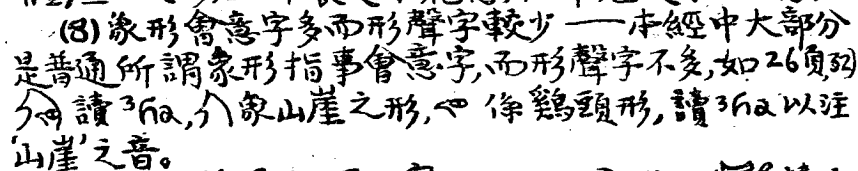 (8)象形會意字多而形聲字較少——本經中大部分
是普通所謂象形指事會意字,而形聲字不多,如26頁
讀³ɦa,象山崖之形,係鷄頭形,讀³ɦa以注
'山崖'之音。